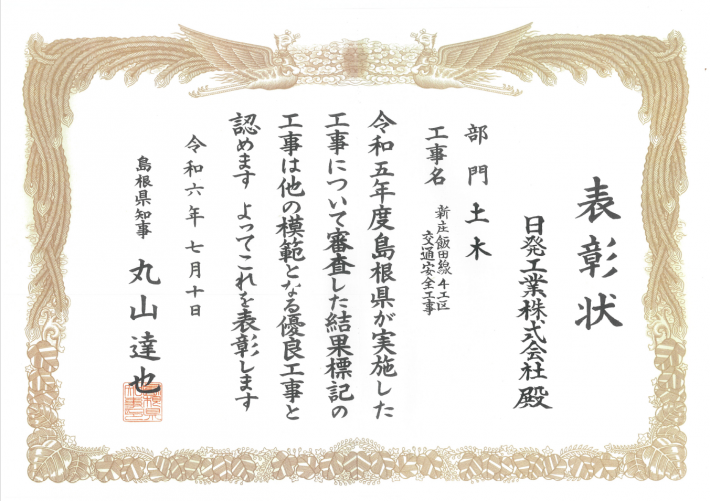 表彰状
日発工業株式会社 殿
部門 土木
工事名 新庄飯田線4工区
交通安全工事
令和五年度島根県が実施した
工事について審査した結果標記の
工事は他の模範となる優良工事と
認めます よってこれを表彰します
令和六年七月十日
島根県知事 丸山達也